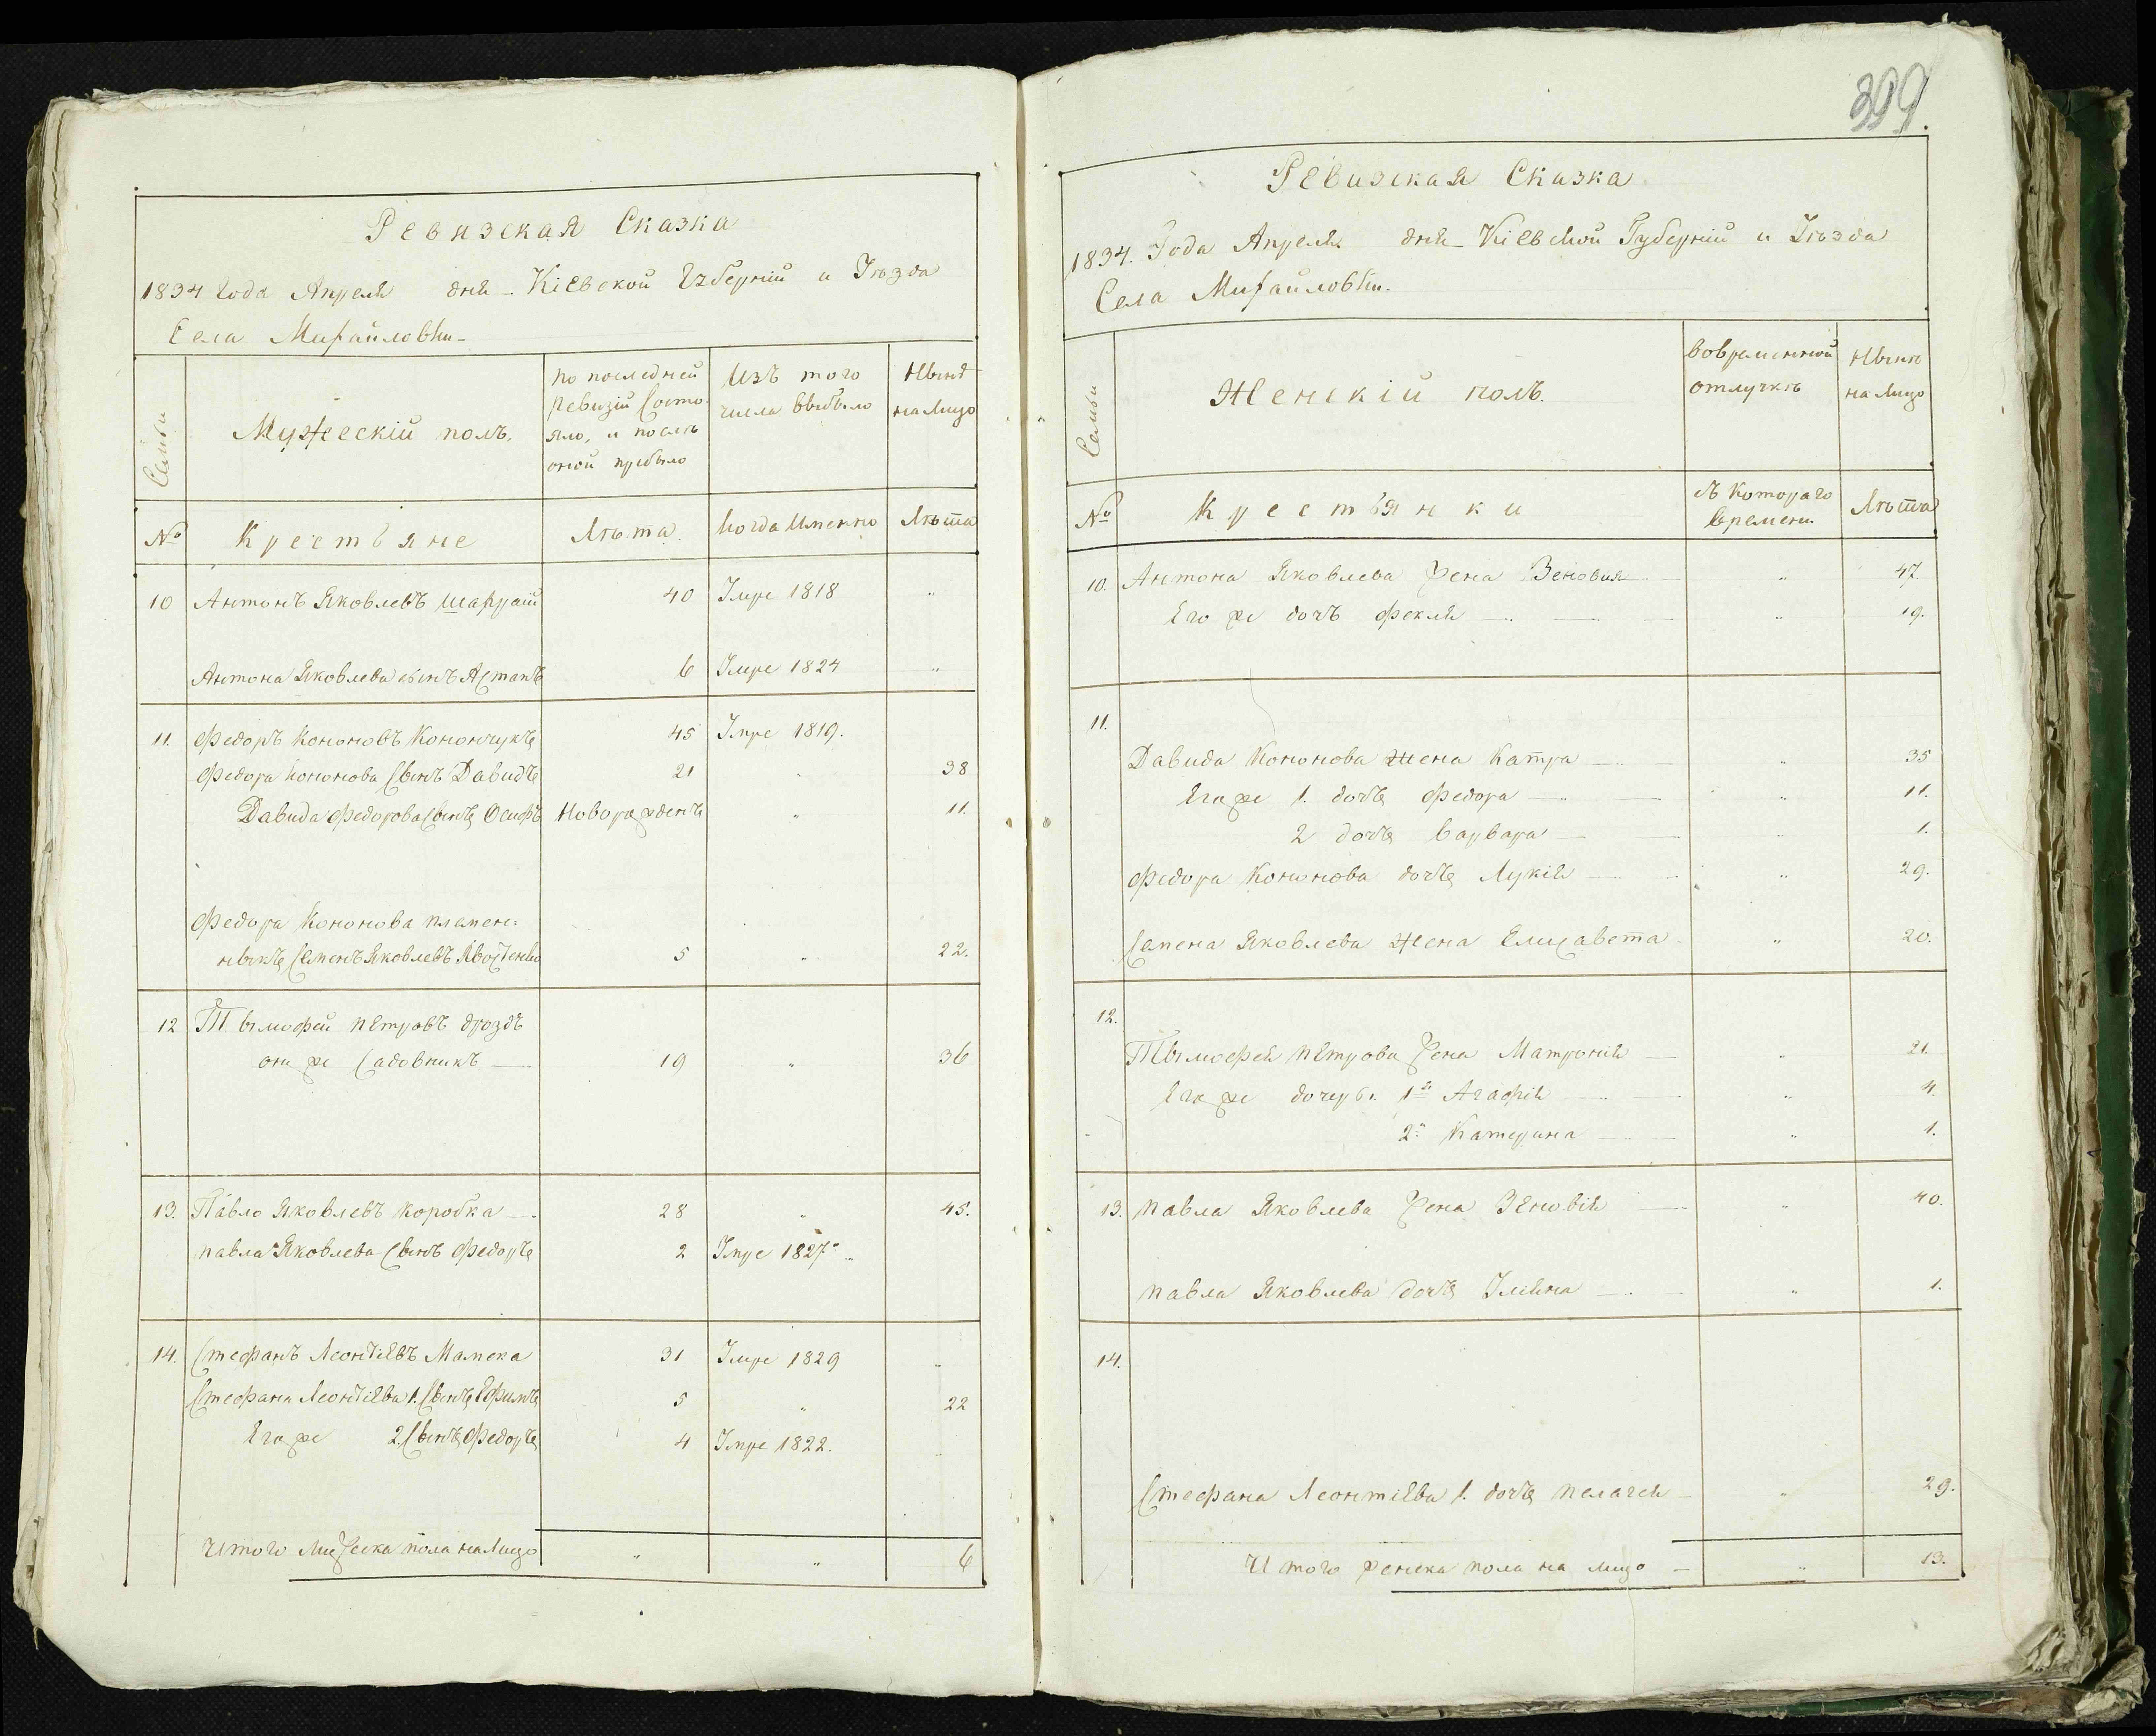 Ревизская Сказка
1834 Года Апреля дня Кіевской Губерніи и Уѣзда
Села Михайловки
Семьи
Мужескій полъ.
по последней
ревизіи Состо
яло, и послѣ
оной прибыло
Изъ того
числа выбыло
Нынѣ
на Лицо
№
Крестьяне
Лѣта.
Когда Именно
Лѣта
10 Антонъ Яковлевъ 40 Умре 1818 "
Антона Яковлева сынъ Астапъ 6 Умре 1824 "
11. Федоръ Кононовъ Конончукъ 45 Умре 1819.
Федора Кононова Сынъ Давидъ 21 " 38
Давида Федорова Сынъ Осифъ Новорожденъ " 11.
Федора Кононова племен:
никъ Семенъ Яковлевъ 5 " 22.
12 Тымофей Петровъ Дроздъ
онъ же Садовникъ 19 " 36
13. Павло Яковлевъ Коробка 28 " 45.
Павла Яковлева Сынъ Федоръ 2 Умре 1827 "
14. Стефанъ Леонтіевъ Мамека 31 Умре 1829 "
Стефана Леонтіева 1. Сынъ Ефимъ 5 " 22
Его же 2 Сынъ Федоръ 4 Умре 1822. "
Итого Мужеска пола на Лицо " " 6
399.
Ревизская Сказка
1834. Года Апреля дня Кіевской Губерніи и Уѣзда
Села Михайловки.
Семьи
Женскій полъ.
вовременной
отлучкѣ
Нынѣ
на Лицо
№
Крестьянки
съ Котораго
времени
Лѣта
10. Антона Яковлева жена Зеновия " 47.
Его же дочъ Фекля " 19.
11.
Давида Кононова жена Катра " 35
Его же 1. дочъ Федора " 11.
2 дочъ Варвара " 1.
Федора Кононова дочъ Лукія " 29.
Семена Яковлева жена Елисавета " 20.
12.
Тымофея Петрова жена Матронія " 21.
Его же дочери. 1я Агафія " 4.
2я Катерина " 1.
13. Павла Яковлева жена Зеновія " 40.
Павла Яковлева дочъ Уліяна " 1.
14.
Стефана Леонтіева 1. дочъ Пелагея " 29.
Итого женска пола на лицо " 13.